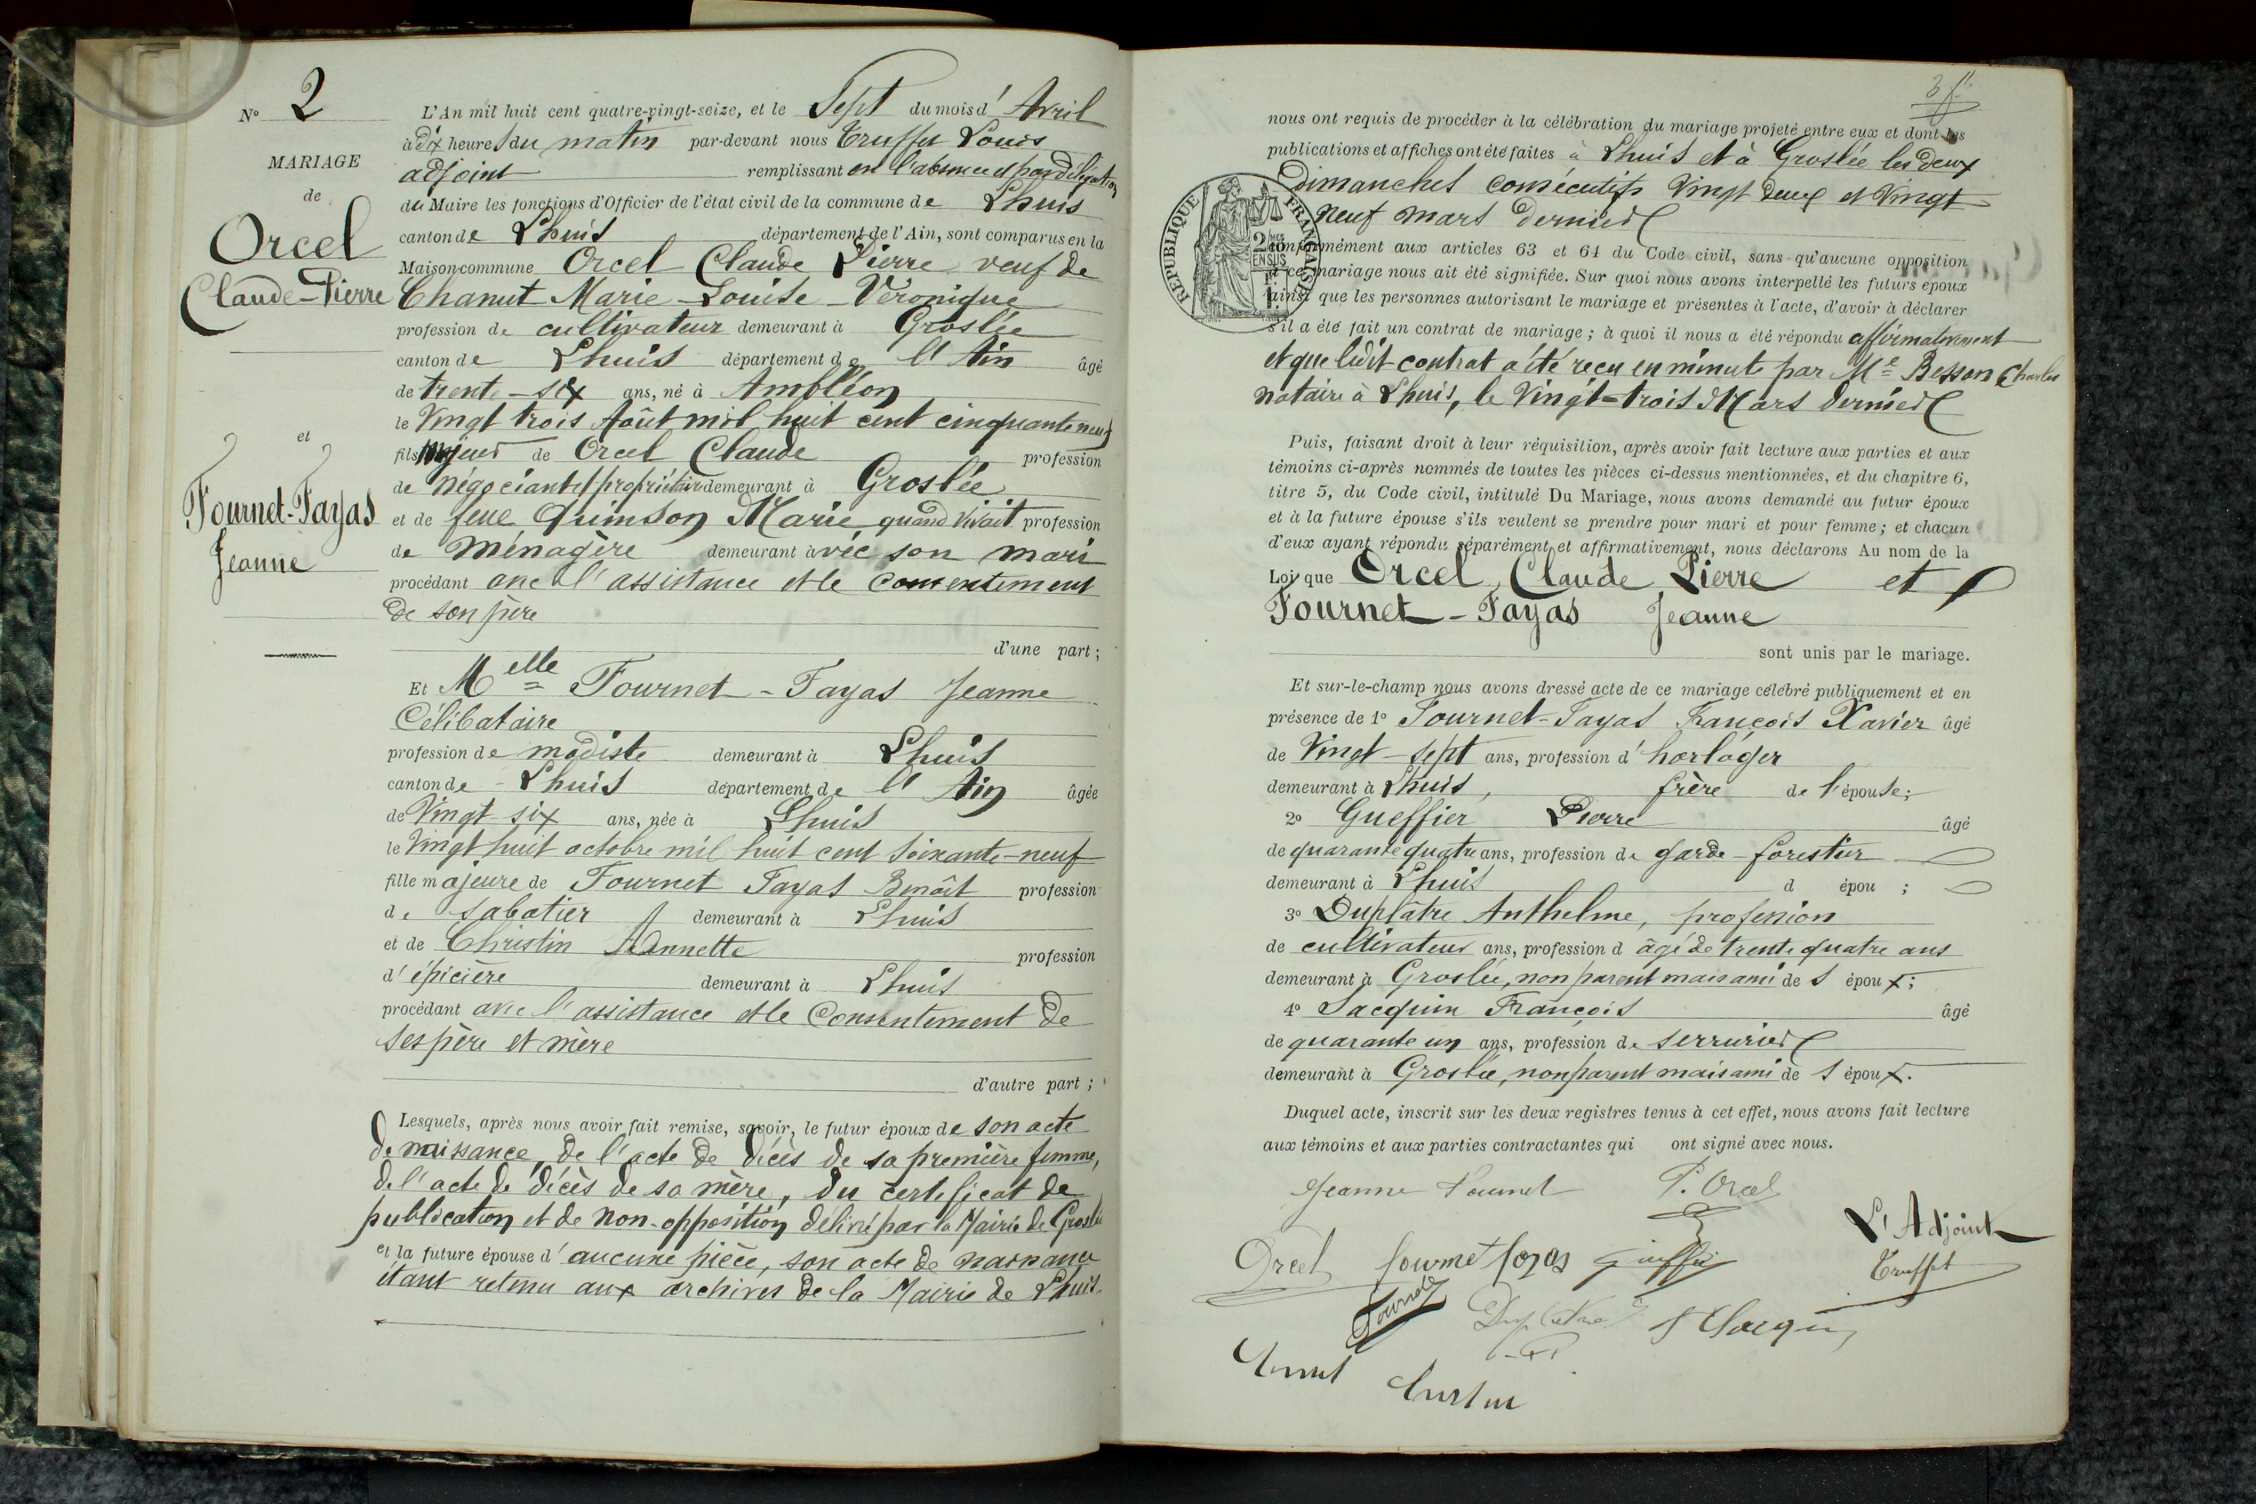 N° 2
MARIAGE
de
Orcel
Claude-Pierre
et
Fournet-Fayas
Jeanne
L'An mil huit cent quatre-vingt-seize, et le Sept du mois d'Avril
à dix heures du matin par-devant nous Truffet Louis
adjoint remplissant en l'absence et par délégation
du Maire les fonctions d'Officier de l'état civil de la commune de Lhuis
canton de Lhuis département de l'Ain, sont comparus en la
Maison commune Orcel Claude Pierre veuf de
Chanut Marie-Louise-Véronique
profession de cultivateur demeurant à Groslée
canton de Lhuis département de l'Ain âgé
de trente-six ans, né à Ambléon
le Vingt trois Août mil huit cent cinquante neuf
fils majeur de Orcel Claude profession
de négociant et propriétaire demeurant à Groslée
et de feue Quinson Marie quand vivait profession
de Ménagère demeurant avec son mari
procédant avec l'assistance et le consentement
de son père
d'une part ;
Et Melle Fournet-Fayas Jeanne
Célibataire
profession de modiste demeurant à Lhuis
canton de Lhuis département de l'Ain âgée
de Vingt-six ans, née à Lhuis
le Vingt huit octobre mil huit cent soixante-neuf
fille majeure de Fournet Fayas Benoît profession
de sabotier demeurant à Lhuis
et de Christin Annette profession
d'épicière demeurant à Lhuis
procédant avec l'assistance et le Consentement de
ses père et mère
d'autre part ;
Lesquels, après nous avoir fait remise, savoir, le futur époux de son acte
de naissance, de l'acte de décès de sa première femme,
de l'acte de décès de sa mère, du certificat de
publication et de non-opposition délivré par la Mairie de Groslée
et la future épouse d'aucune pièce, son acte de naissance
étant retenu aux archives de la Mairie de Lhuis.
nous ont requis de procéder à la célébration du mariage projeté entre eux et dont les
publications et affiches ont été faites à Lhuis et à Groslée les deux
Dimanches consécutifs Vingt deux et Vingt
neuf mars dernier
RÉPUBLIQUE FRANÇAISE
conformément aux articles 63 et 64 du Code civil, sans qu'aucune opposition
à ce mariage nous ait été signifiée. Sur quoi nous avons interpellé les futurs époux
ainsi que les personnes autorisant le mariage et présentes à l'acte, d'avoir à déclarer
s'il a été fait un contrat de mariage ; à quoi il nous a été répondu affirmativement
et que ledit contrat a été reçu en minute par Me Besson Charles
notaire à Lhuis, le Vingt-trois Mars dernier
Puis, faisant droit à leur réquisition, après avoir fait lecture aux parties et aux
témoins ci-après nommés de toutes les pièces ci-dessus mentionnées, et du chapitre 6,
titre 5, du Code civil, intitulé Du Mariage, nous avons demandé au futur époux
et à la future épouse s'ils veulent se prendre pour mari et pour femme ; et chacun
d'eux ayant répondu séparément et affirmativement, nous déclarons Au nom de la
Loi que Orcel Claude Pierre et
Fournet-Fayas Jeanne
sont unis par le mariage.
Et sur-le-champ nous avons dressé acte de ce mariage célébré publiquement et en
présence de 1° Fournet-Fayas François Xavier âgé
de Vingt-sept ans, profession d'horloger
demeurant à Lhuis, frère de l'épouse ;
2° Gueffier Pierre âgé
de quarante quatre ans, profession de garde-forestier
demeurant à Lhuis d épou ;
3° Duplâtre Anthelme, profession
de cultivateur ans, profession d âgé de trente quatre ans
demeurant à Groslée, non parent mais ami de l'époux ;
4° Jacquin François âgé
de quarante un ans, profession de serrurier
demeurant à Groslée, non parent mais ami de l'époux.
Duquel acte, inscrit sur les deux registres tenus à cet effet, nous avons fait lecture
aux témoins et aux parties contractantes qui ont signé avec nous.
Jeanne Fournet P. Orcel
L'Adjoint
Orcel fournet fayas Gueffier Truffet
Fournet Duplatre f Jacquin